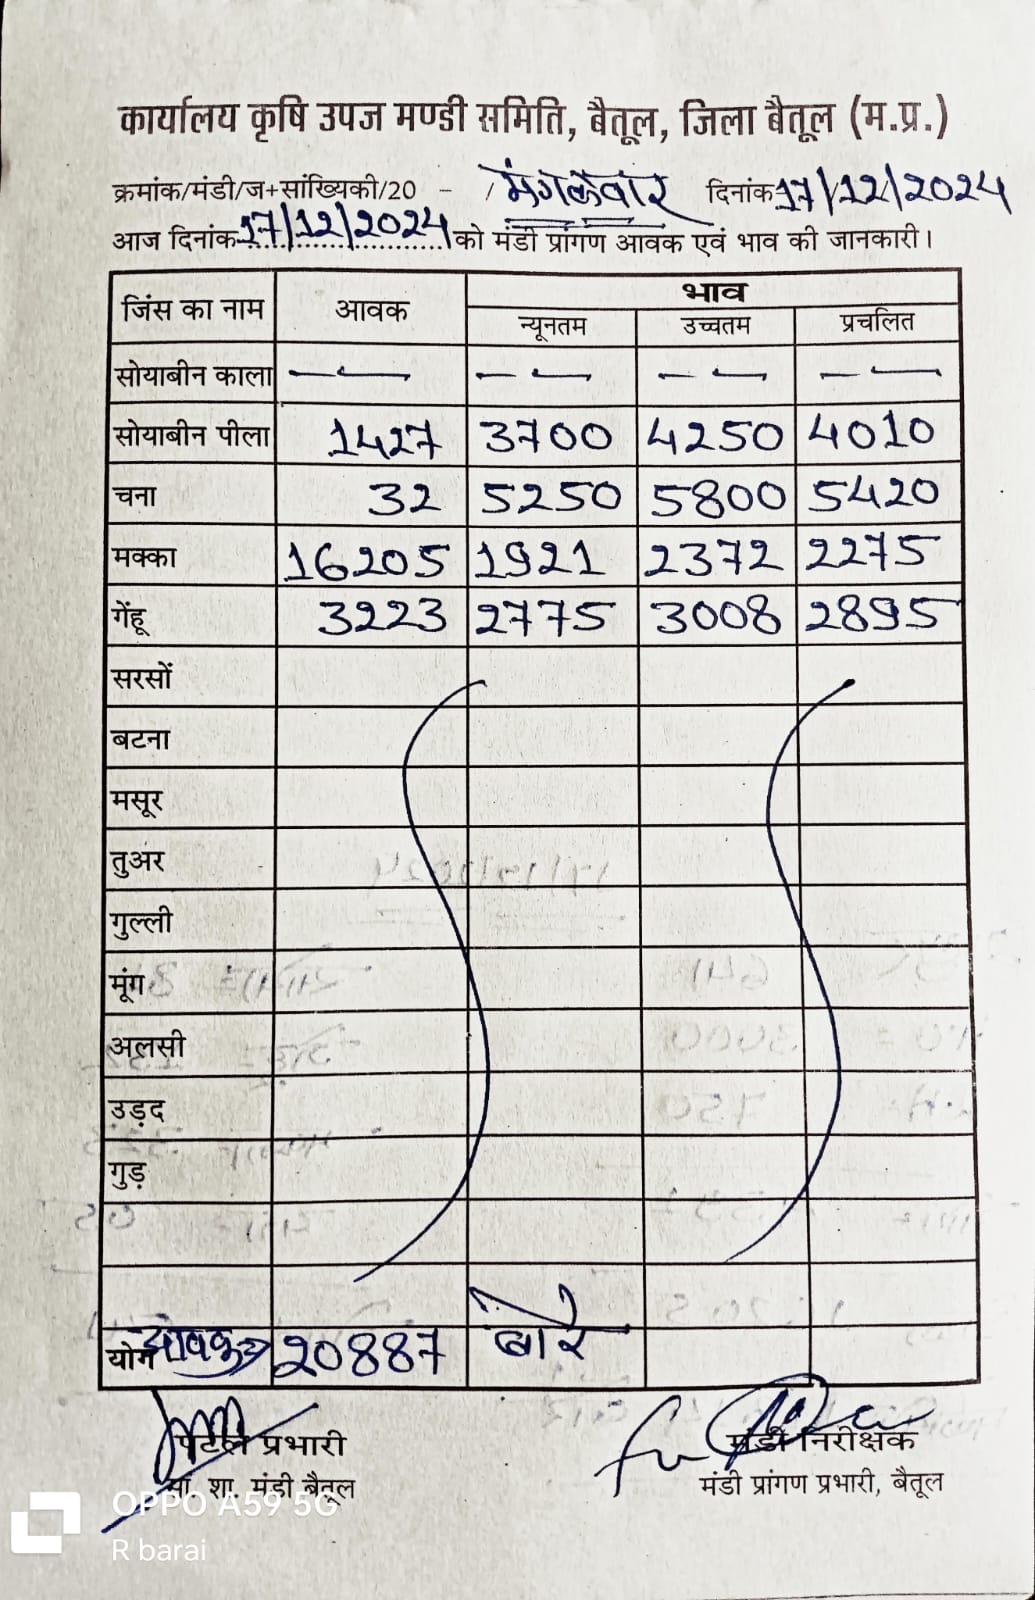 कार्यालय कृषि उपज मण्डी समिति, बैतूल, जिला बैतूल (म.प्र.)
क्रमांक/मंडी/ज+सांख्यिकी/20 - / मंगलवार दिनांक 17/12/2024
आज दिनांक 17/12/2024 को मंडी प्रांगण आवक एवं भाव की जानकारी।
जिंस का नाम आवक भाव
न्यूनतम उच्चतम प्रचलित
सोयाबीन काला — — — — — — — —
सोयाबीन पीला 1427 3700 4250 4010
चना 32 5250 5800 5420
मक्का 16205 1921 2372 2275
गेंहू 3223 2775 3008 2895
सरसों
बटना
मसूर
तुअर
गुल्ली
मूंग
अलसी
उड़द
गुड़
योग आवक 20887 बोरे
पटल प्रभारी मंडी निरीक्षक
सां. शा. मंडी बैतूल मंडी प्रांगण प्रभारी, बैतूल
OPPO A59 5G
R barai